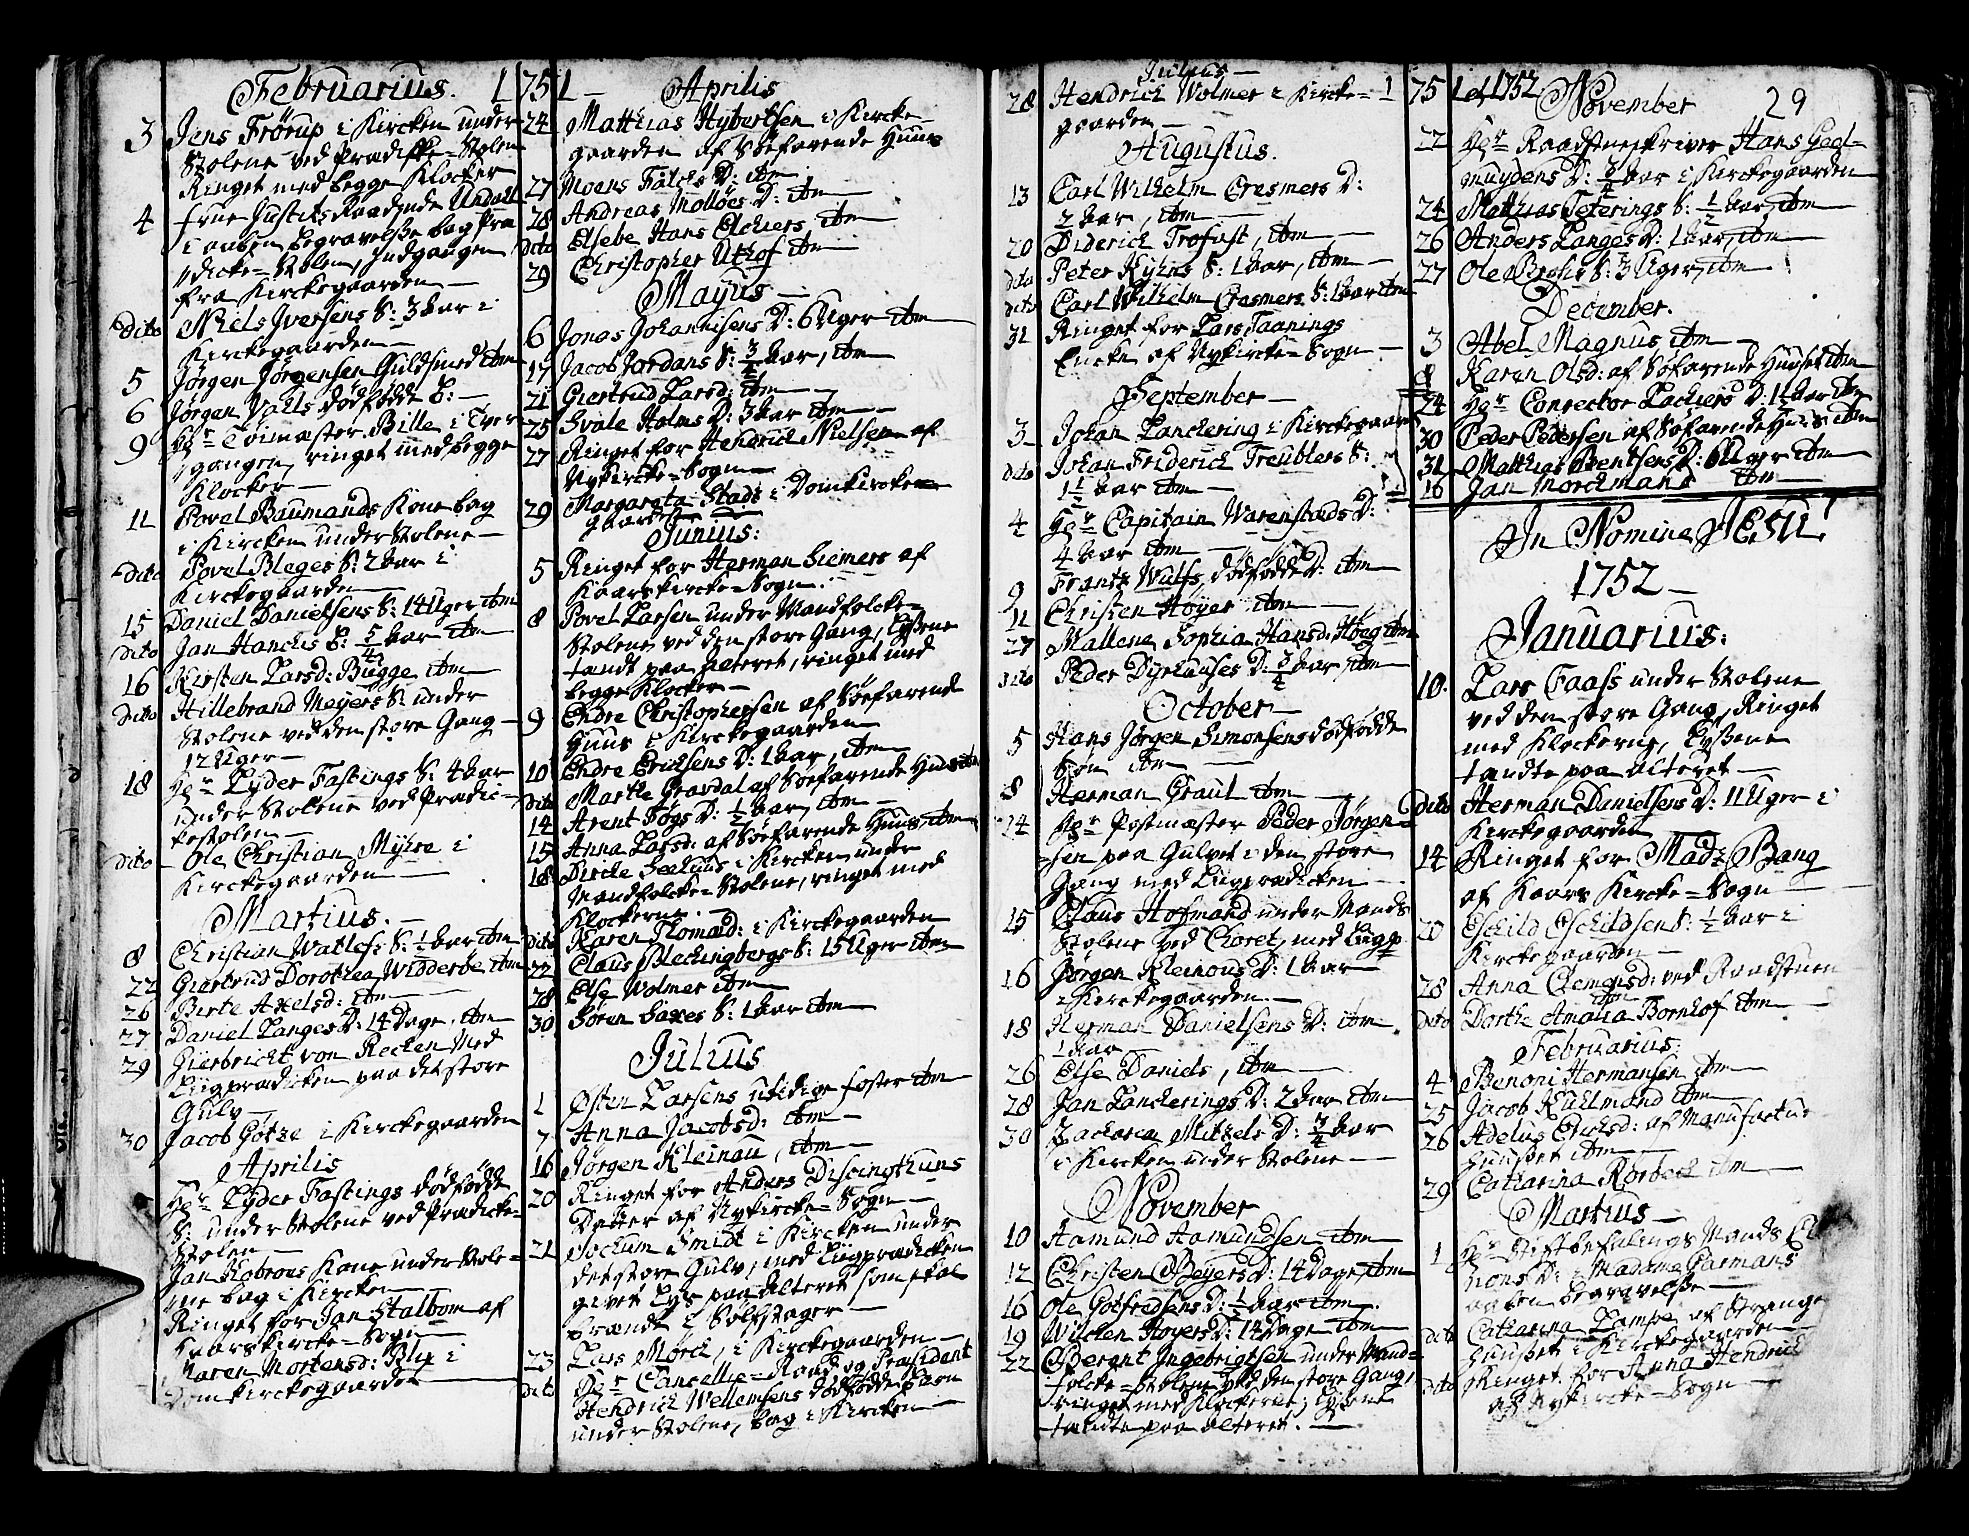 Februarius. 1751
3 Jens Frörup i Kircken under
Stolene ved Prædicke=Stolen
Ringet med begge Klocker
4 Frue Justits Raadinde Undall
i aaben begravelse bag Præ
dicke=Stolen, Indgangen
fra Kirckegaarden
Dito Niels Iversens S: 3 aar i
Kirckegaarden
5 Jörgen Jörgensen Guldsmed ibm
6 Jörgen Vahls dödfödde B:
9 Hr Töimæster Bille i Tver
gangen, ringet med begge
Klocker
11 Povel Baumands Kone bag
i Kircken under Stolene
Dito Povel Pleges S: 2 aar i
Kirckegaarden
15 Daniel Danielsens S: 14 Uger ibm
dito Jan Hanckes S: 5/4 aar ibm
16 Kirsten Larsd: Bugge ibm
Dito Hillebrand Meyers S: under
Stolene ved den store Gang
12 Uger
18 Hr Lyder Fastings S: 4 aar
under Stolene ved Prædic=
kestolen
dito Ole Christian Myhre i
Kirckegaarden
Martius.
8 Christian Watlefs S: 1/2 aar ibm
22 Giertrud Dorothea Widderöe ibm
26 Birte Axelsd: ibm
27 Daniel Langes D: 14 Dage, ibm
29 Gierbricht von Recken med
Liigprædicken paa det store
Gulv
30 Jacob Götze i Kirckegaarden
Aprilis
Hr Lyder Fastings dödfödde
S: under Stolene ved Prædicke=
Stolen
Jan Kobrous Kone under Stole=
ne bag i Kircken
Ringet for Jan Stalbom af
Kaarskircke=Sogn
Karen Mortensd: Blix i
Domkirckegaarden
Aprilis
24 Matthias Hybertsen i Kircke
gaarden af Söefarende Huus
27 Moens Falcks D: ibm
28 Andreas Mollöes D: ibm
dito Elsebe Hans Elchiers ibm
29 Christopher Uthof ibm
Mayus
6 Jonas Johannisens D: 6 Uger ibm
17 Jacob Jordans S: 3/4 aar, ibm
21 Giertrud Larsd: ibm
25 Svale Holms D: 3 aar ibm
27 Ringet for Hendrick Nielsen af
Nykircke=Sogn
29 Margareta Stads i Domkircke=
gaarden
Junius:
5 Ringet for Herman Siemers af
Kaarskircke=Sogn
8 Povel Larsen under Mandfolcke=
Stolene ved den store Gang, Lyßene
tendt paa alteret, ringet med
begge Klocker
9 Endre Christophersen af Söefarende
Huus i Kirckegaarden
10 Endre Ericksens D: 1 aar, ibm
dito Marthe Gravdal af Söefarende Huus ibm
14 Arent Fögs D: 1/2 aar, ibm
15 Anna Larsd: af Söefarende Huus, ibm
18 Dircke Seeluus i Kircken under
Mandfolcke=Stolene, ringet med
Klockerne
dito Karen Tlomæd: i Kirckegaarden
22 Claus Bleckingbergs S: 15 Uger ibm
28 Else Wolmer ibm
30 Sören Saxes S: 1 aar ibm
Julius
1 Östen Larsens utidige foster ibm
7 Anna Jacobsd: ibm
16 Jörgen Kleinau, ibm
20 Ringet for Anders Discingthuns
Datter af Nykircke=Sogn
21 Jockum Smidt i Kircken under
det store Gulv, med Liigprædicken
givet Lys paa Alteret som skal
brændt i Sölfstager
23 Lars Mörch, i Kirckegaarden
dito Hr Cancellie=Raad og Præsident
Hendrich Wellemsens dödfödde Barn
under Stolene, bag i Kircken
Julius
28 Hendrich Wolmer i Kircke=
gaarden
Augustus.
13 Carl Wilhelm Cresmers D:
2 aar, ibm
20 Diderich Trofast, ibm
dito Peter Kyhns S: 1 aar, ibm
dito Carl Wilhelm Cresmers S: 1 aar ibm
31 Ringet for Lars Taanings
Encke af Nykircke=Sogn
September
3 Johan Lanckering i Kirckegaarn
dito Johan Friderich Treublers S:
1 1/2 aar ibm
4 Hr Capitain Warenstads D:
4 aar ibm
9 Frantz Wulfs, dödfödde D: ibm
11 Christen Höyer ibm
27 Mallene Sophia Hansd: Höeg ibm
dito Peder Dyrhuuses D: 3/4 aar ibm
October
5 Hans Jörgen Simonsens dödfödde
Sön ibm
8 Herman Graul ibm
14 Hr Postmæster Peder Jörgen=
sen paa Gulvet i den store
Gang med Liigprædicken
15 Claus Hofmand under Mands
Stolene ved Choret, med Liigp
16 Jörgen Kleinous D: 1 aar
i Kirckegaarden
18 Herman Danielsens D: ibm
1/2 aar
26 Else Daniels, ibm
28 Jan Lanckerings D: 2 aar ibm
30 Zacharia Mitzels D: 3/4 aar
i Kircken under Stolene
November
10 Aamund Aamundsen ibm
12 Christen Beyers D: 14 Dage, ibm
16 Ole Gotfredsens D: 1/2 aar ibm
19 Wilcken Hoyers D: 14 Dage ibm
22 Berent Ingebrigtsen under Mand=
folcke=Stolene ved den store Gang,
ringet med Klockerne, Lyßene
tændte paa alteret.
1751 et 1752
November 29
22 Hr Raadstueskriver Hans Geel=
muydens D: 3/4 aar i Kirckegaarden
24 Matthias Teterings S: 1/2 aar, ibm
26 Anders Langes D: 1 aar, ibm
27 Ole Brochs S: 3 Uger, ibm
December.
3 Abel Magnus ibm
8 Karen Olsd: af Söfarende Huuset ibm
24 Hr Conrector Lachiers D: 11 aar ibm
30 Peder Pedersen af Söfarende Huus ibm
31 Matthias Brentsens D: 6 Uger ibm
16 Jan Morchmand ibm
In Nomine JESU!
1752
Januarius:
10. Lars Faass under Stolene
ved den store Gang, Ringet
med Klockerne, Lyßene
tændte paa alteret
dito Herman Danielsens D: 11 Uger i
Kirckegaarden
14 Ringet for Madz Bang
af Kaars Kircke=Sogn
20 Eschild Eschildsens S: 1/2 aar i
Kirckegaarden
28 Anna Clemensd: ved Raadstuen
ibm
dito Dorthe Amalia Bornhof ibm
Februarius:
4 Benoni Hermansen ibm
25 Jacob Kuhlmand ibm
26 Adelus Ericksd: af Manufactur
Huuset ibm
29 Catharina Rörbeck ibm
Martius
1 Hr Stiftbefalings Mands
nons D: i Madame Garmans
aaben begravelse
dito Catharina Lampe af Strange
Huuset i Kirckegaarden
dito Ringet for Anna Hendrich
af Nykircke=Sogn